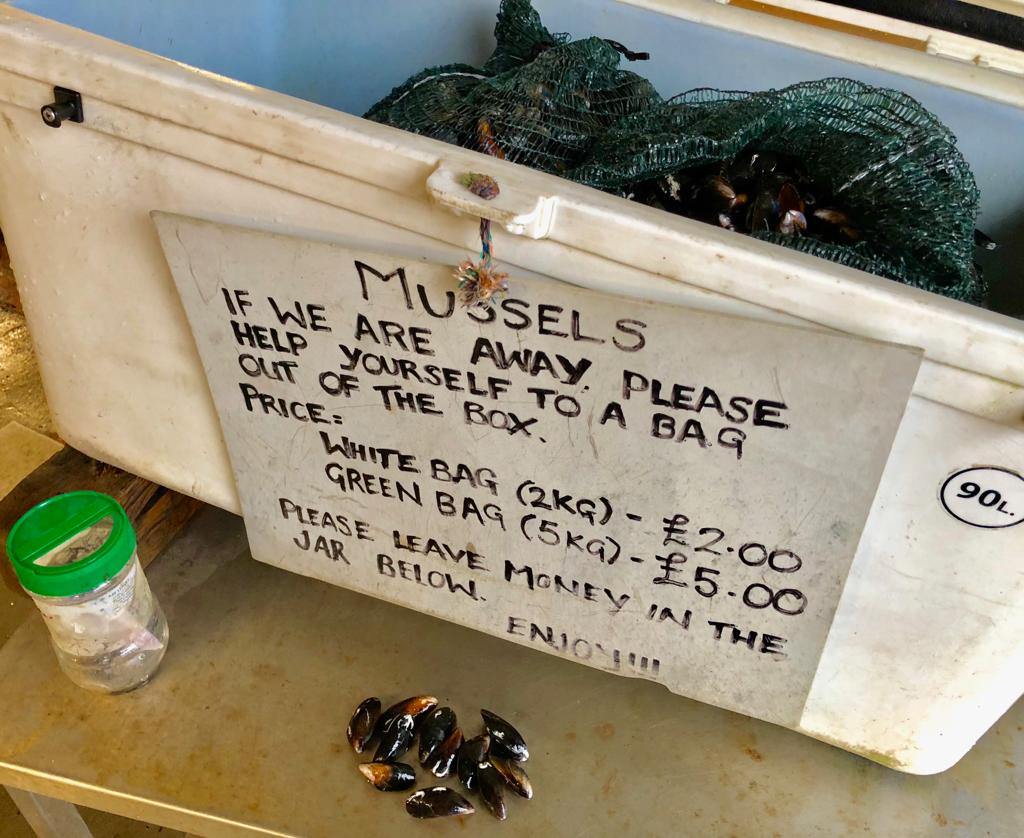 MUSSELS
IF WE ARE AWAY, PLEASE
HELP YOURSELF TO A BAG
OUT OF THE BOX.
PRICE:
WHITE BAG (2KG) - £2.00
GREEN BAG (5KG) - £5.00
PLEASE LEAVE MONEY IN THE
JAR BELOW.
ENJOY!!!
90L.